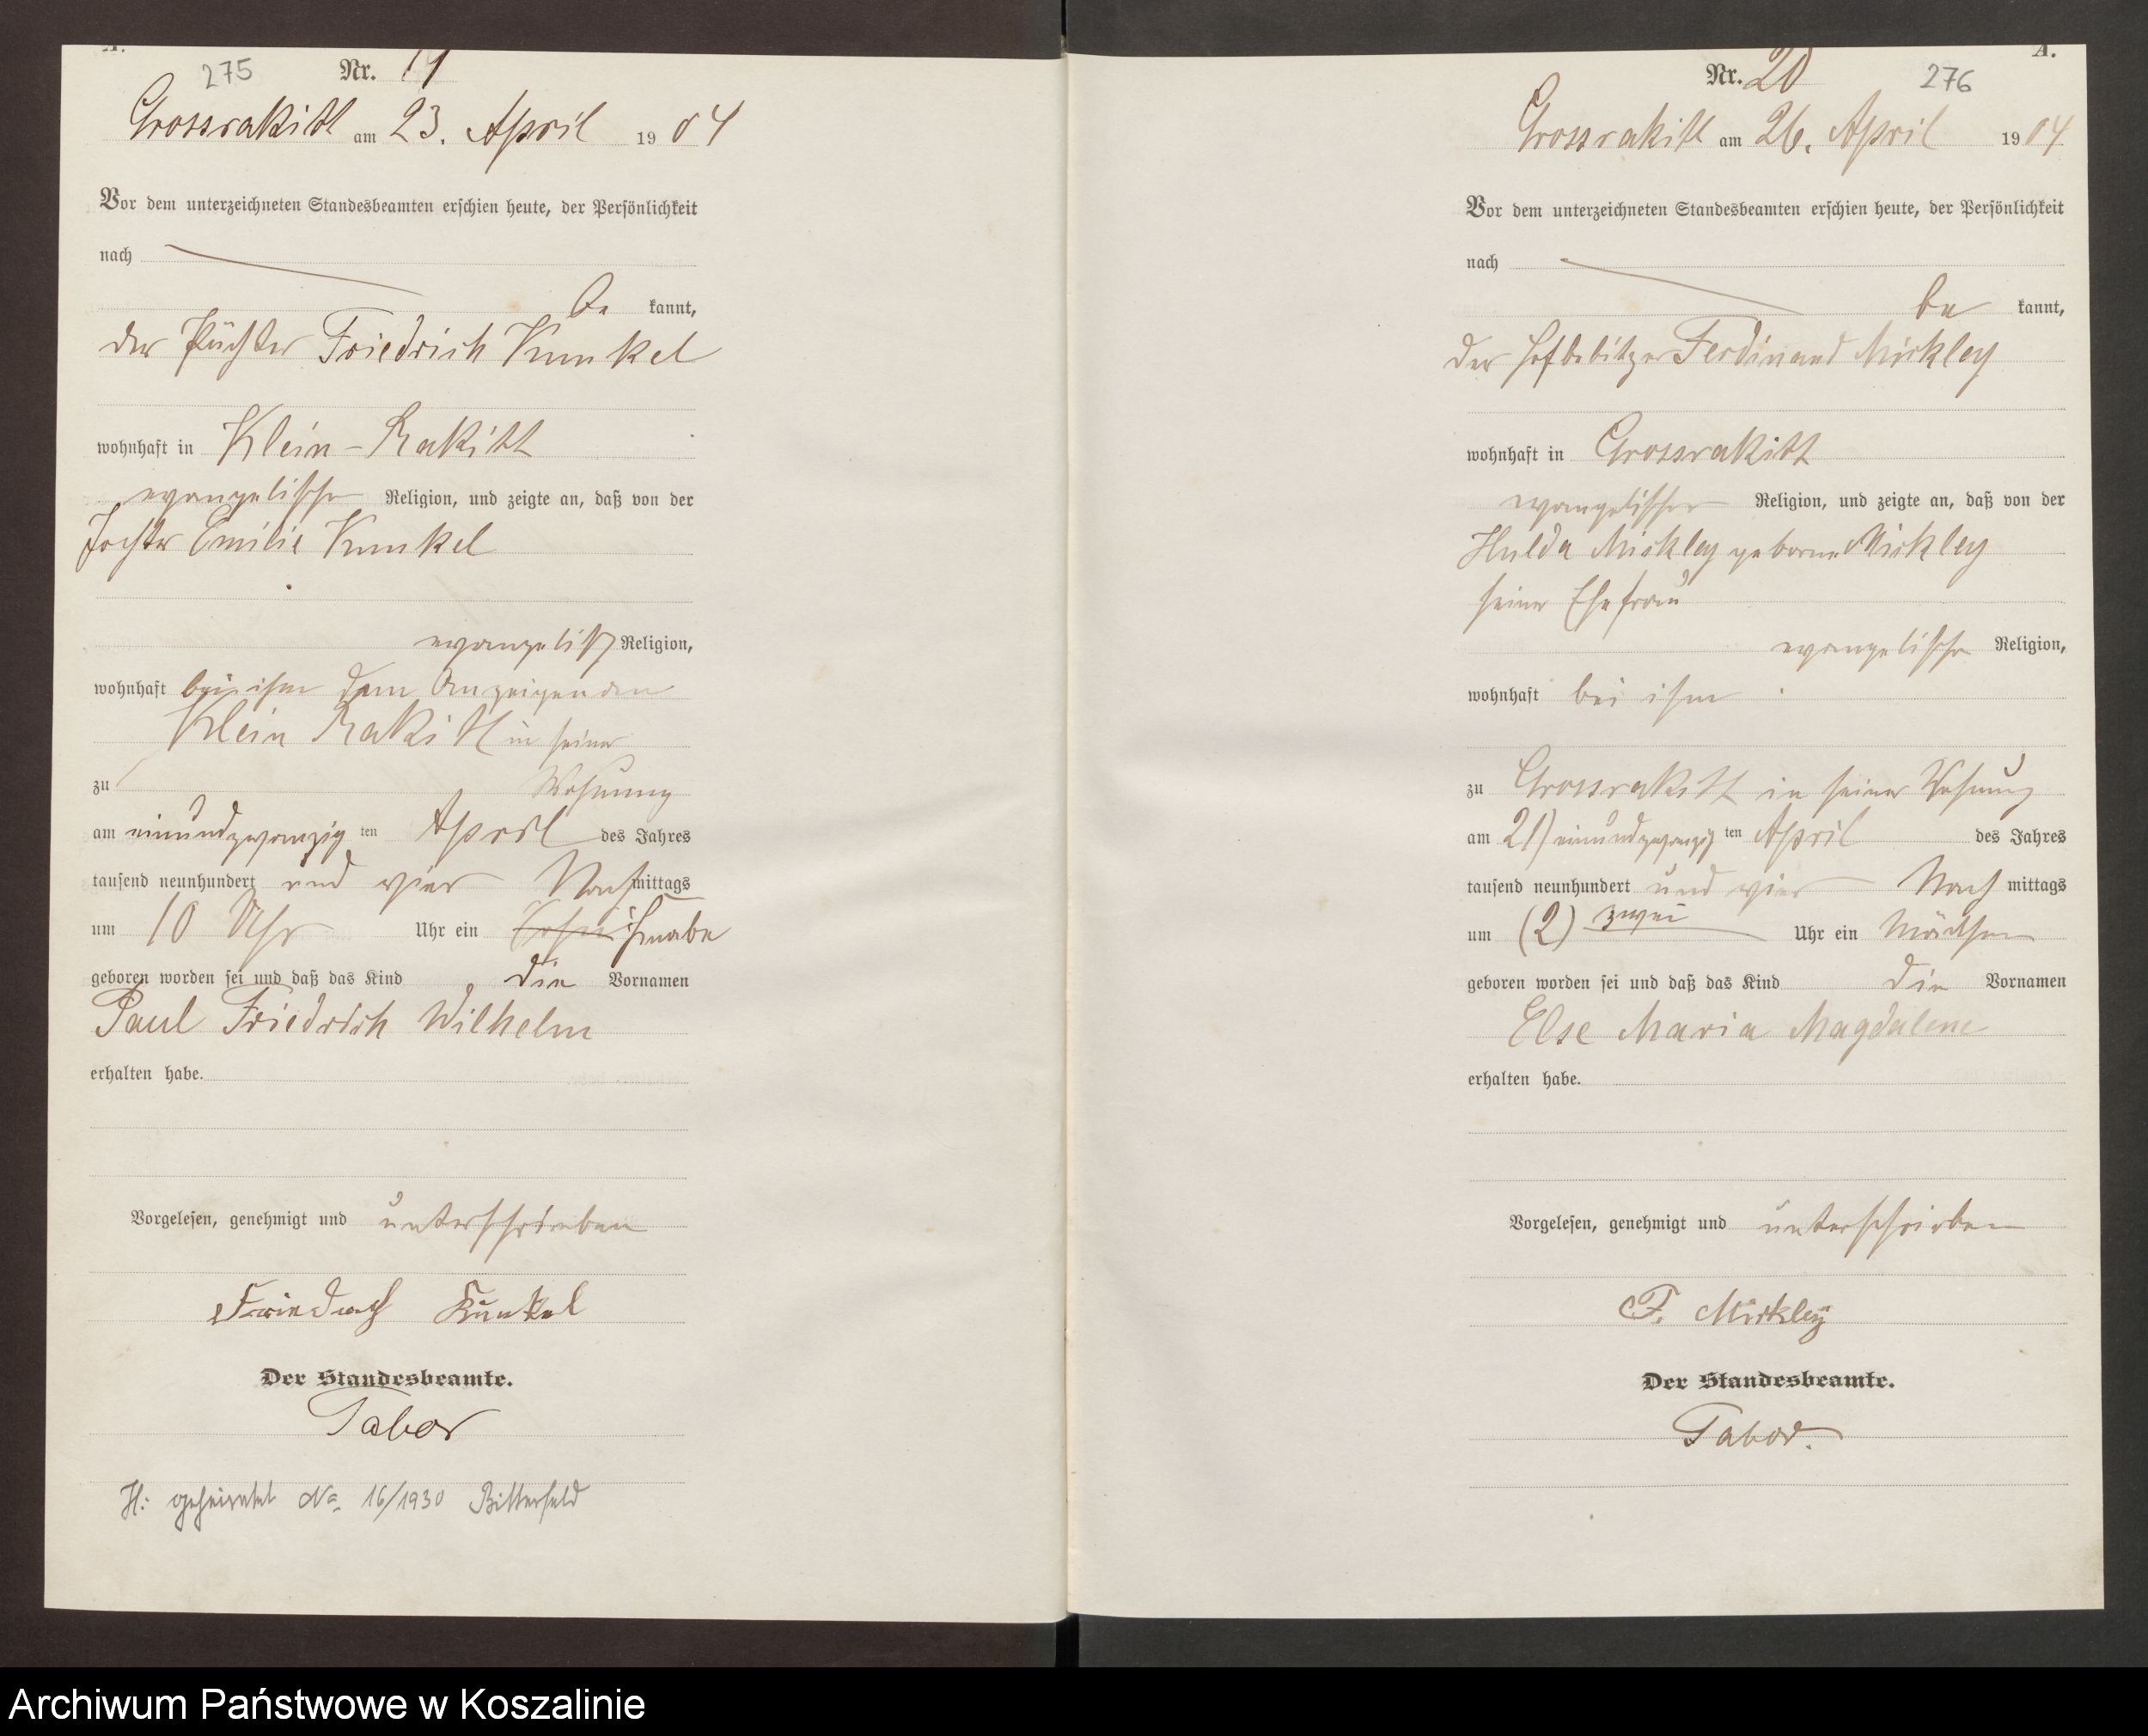 A.
275 Nr. 19
Grossrakitt am 23. April 1904
Vor dem unterzeichneten Standesbeamten erschien heute, der Persönlichkeit
nach
be kannt,
der Pächter Friedrich Kunkel
wohnhaft in Klein-Rakitt
evangelischer Religion, und zeigte an, daß von der
Tochter Emilie Kunkel
evangelisch Religion,
wohnhaft bei ihm dem Anzeigenden
Klein Rakitt in seiner
zu Wohnung
am einundzwanzig ten April des Jahres
tausend neunhundert und vier Nachmittags
um 10 Uhr Uhr ein Knabe
geboren worden sei und daß das Kind die Vornamen
Paul Friedrich Wilhelm
erhalten habe.
Vorgelesen, genehmigt und unterschrieben
Friedrich Kunkel
Der Standesbeamte.
Tabor
H: geheiratet No. 16/1930 Bitterfeld
A.
Nr. 20 276
Grossrakitt am 26. April 1904
Vor dem unterzeichneten Standesbeamten erschien heute, der Persönlichkeit
nach
be kannt,
der Hofbesitzer Ferdinand Mickley
wohnhaft in Grossrakitt
evangelischer Religion, und zeigte an, daß von der
Hulda Mickley geborne Mickley
seiner Ehefrau
evangelischer Religion,
wohnhaft bei ihm
zu Grossrakitt in seiner Wohnung
am 21) einundzwanzig ten April des Jahres
tausend neunhundert und vier Nach mittags
um (2) zwei Uhr ein Mädchen
geboren worden sei und daß das Kind die Vornamen
Else Maria Magdalene
erhalten habe.
Vorgelesen, genehmigt und unterschrieben
F. Mickley
Der Standesbeamte.
Tabor.
Archiwum Państwowe w Koszalinie